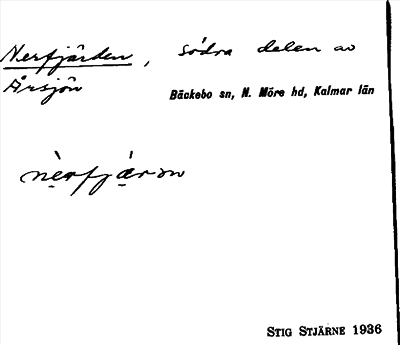 Nerfjärden, södra delen av
Årsjön
Bäckebo sn, N. Möre hd, Kalmar län
STIG STJÄRNE 1936